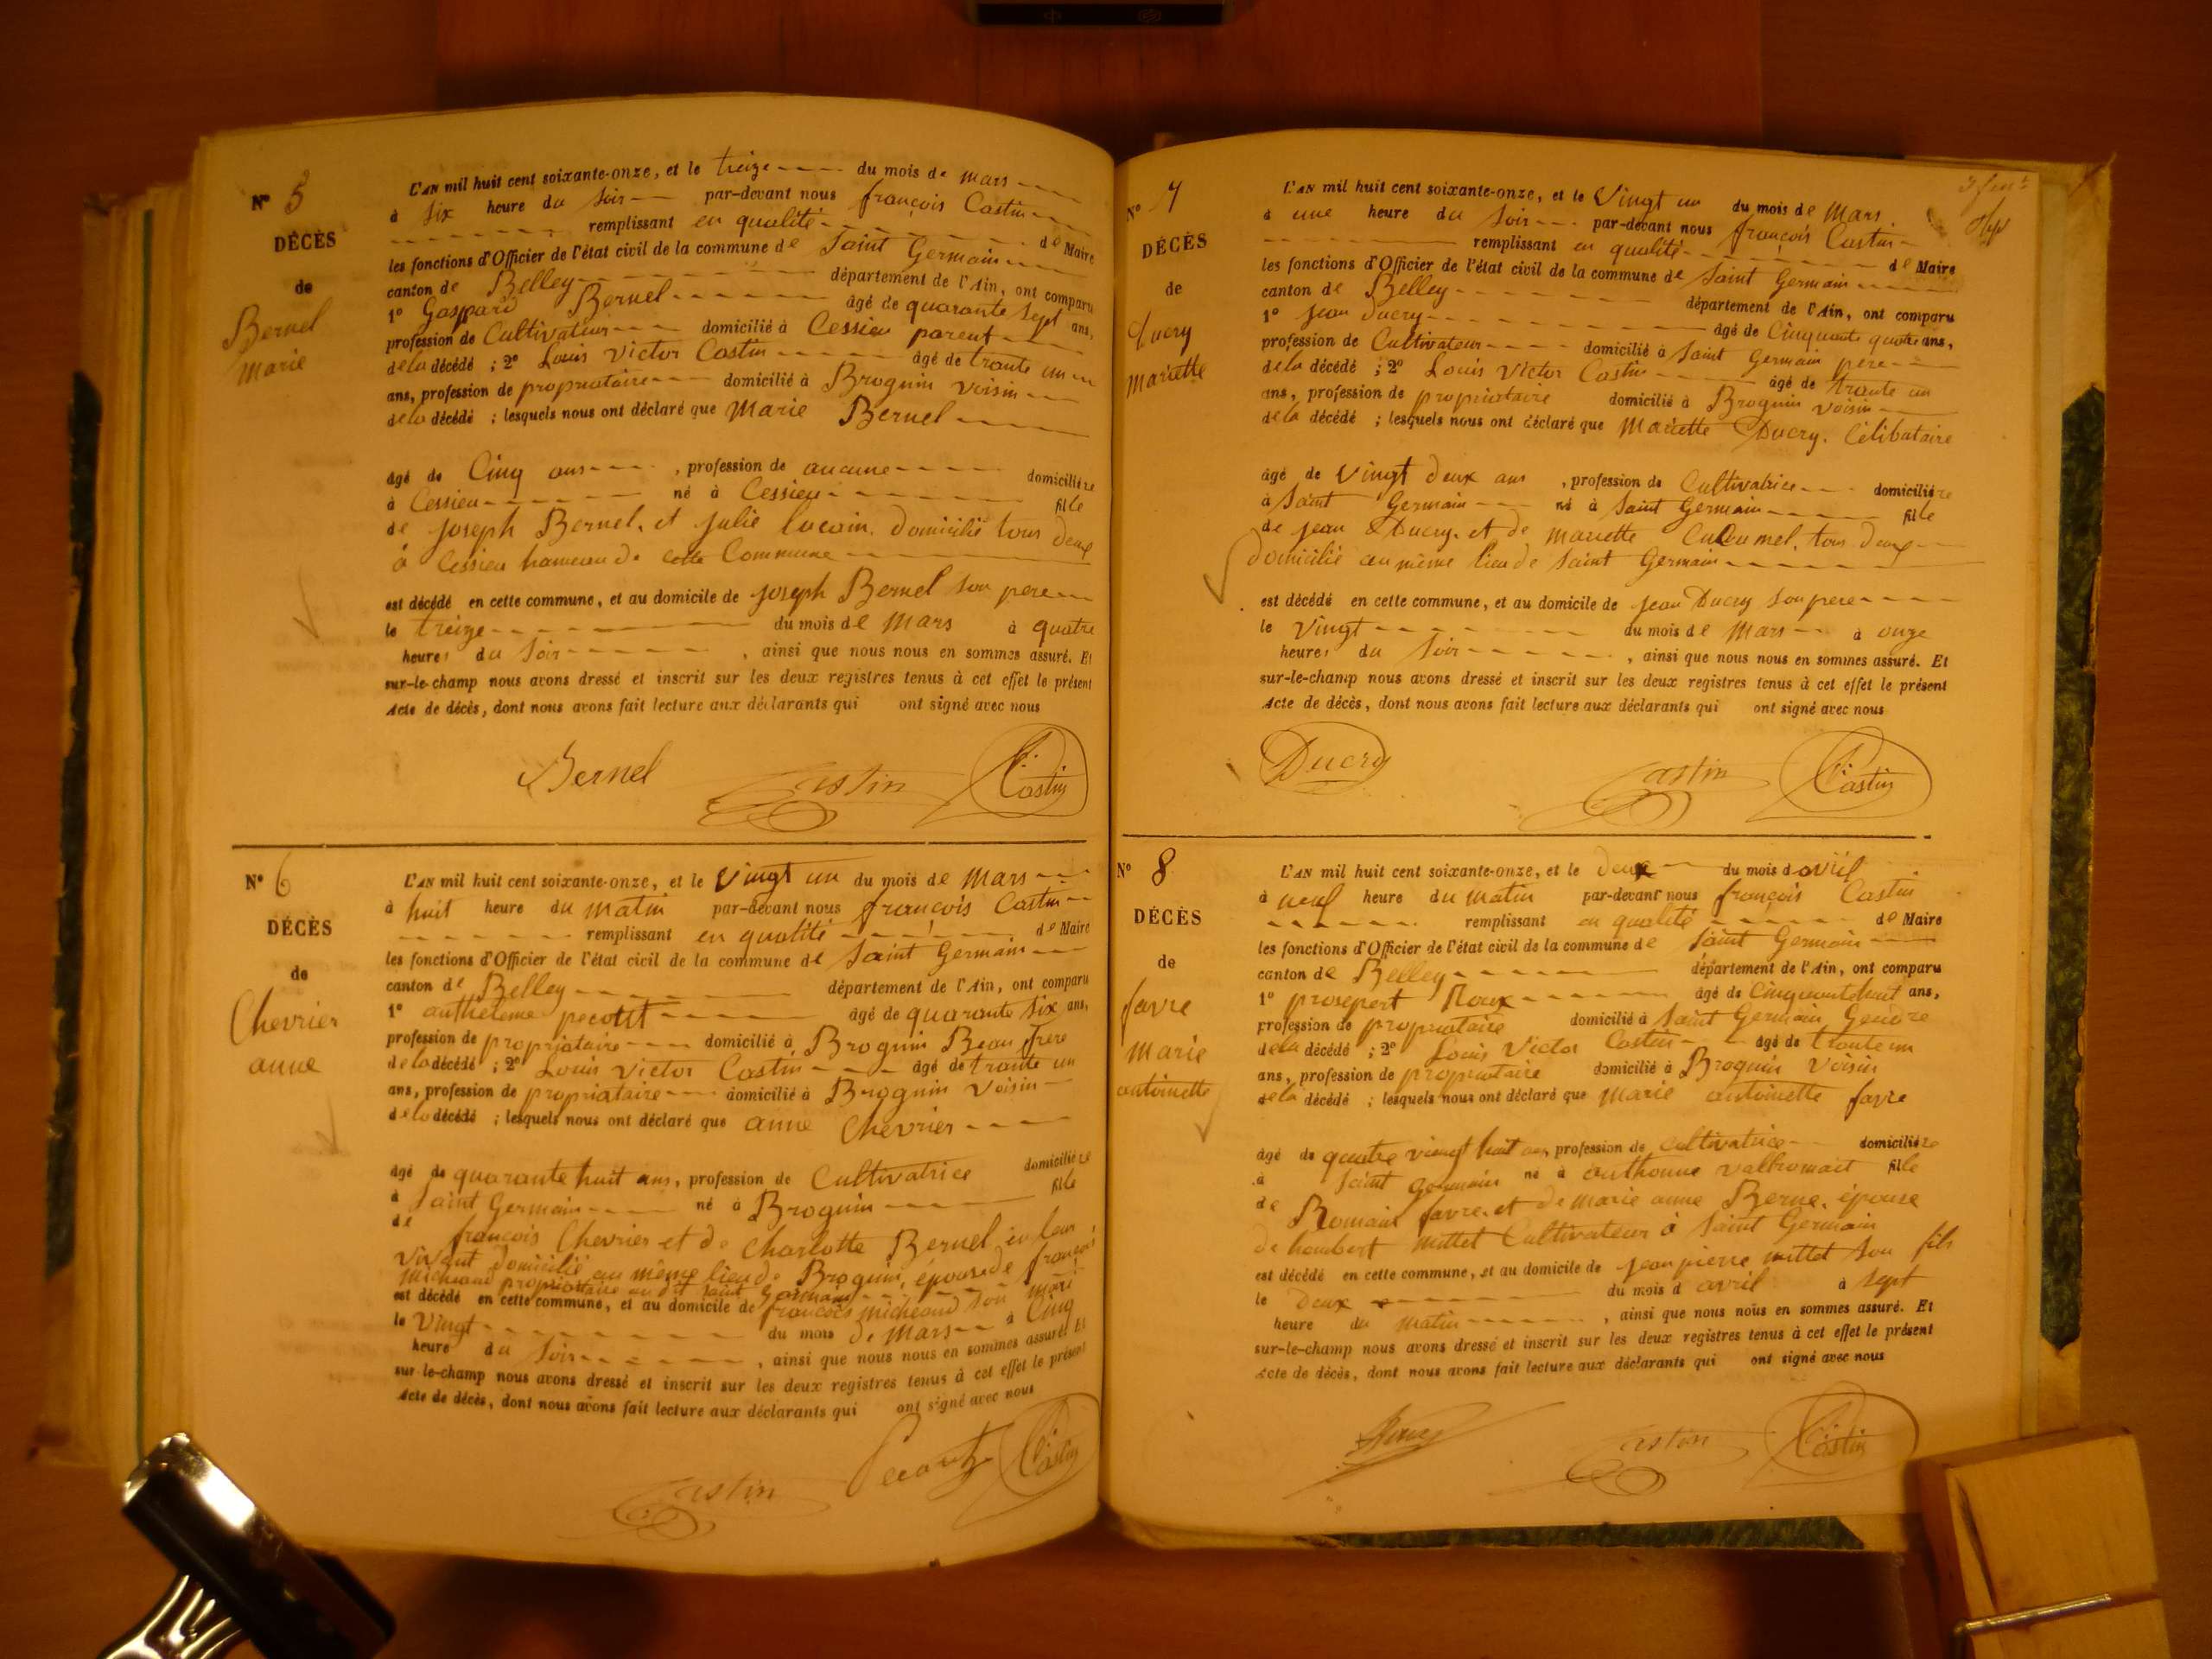 N° 5
DÉCÈS
de
Bernel
Marie
L'AN mil huit cent soixante-onze, et le treize du mois de mars
à six heure du soir par-devant nous françois Castin
remplissant en qualité de Maire
les fonctions d'Officier de l'état civil de la commune de Saint Germain
canton de Belley département de l'Ain, ont comparu
1° Gaspard Bernel âgé de quarante sept ans,
profession de Cultivateur domicilié à Cessieu parent
de la décédé ; 2° Louis Victor Castin âgé de trante un
ans, profession de propriataire domicilié à Brognin voisin
de la décédé ; lesquels nous ont déclaré que Marie Bernel
âgé de Cinq ans, profession de aucune domicilière
à Cessieu né à Cessieu fille
de joseph Bernel, et julie domicilié tous deux
à Cessieu hameau de cette Commune
est décédé en cette commune, et au domicile de joseph Bernel son pere
le treize du mois de Mars à quatre
heures du soir, ainsi que nous nous en sommes assuré. Et
sur-le-champ nous avons dressé et inscrit sur les deux registres tenus à cet effet le présent
Acte de décès, dont nous avons fait lecture aux déclarants qui ont signé avec nous
Bernel Castin Castin
N° 6
DÉCÈS
de
Chevrier
anne
L'AN mil huit cent soixante-onze, et le Vingt un du mois de Mars
à huit heure du matin par-devant nous françois Castin
remplissant en qualité de Maire
les fonctions d'Officier de l'état civil de la commune de Saint Germain
canton de Belley département de l'Ain, ont comparu
1° antheleme âgé de quarante six ans,
profession de propriataire domicilié à Brognin Beau frere
de la décédé ; 2° Louis Victor Castin âgé de trante un
ans, profession de propriataire domicilié à Brognin Voisin
de la décédé ; lesquels nous ont déclaré que anne Chevrier
âgé de quarante huit ans, profession de Cultivatrice domicilière
à Saint Germain né à Brognin fille
de françois Chevrier et de Charlotte Bernel en leur
vivant domicilié au même lieu de Brognin, épouse de françois
micheaud propriataire au dit Saint Germain
est décédé en cette commune, et au domicile de francois micheaud son mari
le Vingt du mois de Mars à Cinq
heure du soir, ainsi que nous nous en sommes assuré. Et
sur-le-champ nous avons dressé et inscrit sur les deux registres tenus à cet effet le présent
Acte de décès, dont nous avons fait lecture aux déclarants qui ont signé avec nous
Castin Castin
N° 7
DÉCÈS
de
Ducry
mariette
L'AN mil huit cent soixante-onze, et le Vingt un du mois de Mars
à une heure du soir par-devant nous françois Castin
remplissant en qualité de Maire
les fonctions d'Officier de l'état civil de la commune de Saint Germain
canton de Belley département de l'Ain, ont comparu
1° jean Ducry âgé de Cinquante quatre ans,
profession de Cultivateur domicilié à Saint Germain pere
de la décédé ; 2° Louis Victor Castin âgé de trante un
ans, profession de propriataire domicilié à Brognin voisin
de la décédé ; lesquels nous ont déclaré que Mariette Ducry. Célibataire
âgé de Vingt deux ans, profession de Cultivatrice domicilière
à Saint Germain né à Saint Germain fille
de jean Ducry. et de mariette tous deux
domicilié au même lieu de Saint Germain
est décédé en cette commune, et au domicile de jean Ducry son pere
le Vingt du mois de Mars à onze
heures du soir, ainsi que nous nous en sommes assuré. Et
sur-le-champ nous avons dressé et inscrit sur les deux registres tenus à cet effet le présent
Acte de décès, dont nous avons fait lecture aux déclarants qui ont signé avec nous
Ducry Castin Castin
N° 8
DÉCÈS
de
favre
Marie
antoinette
L'AN mil huit cent soixante-onze, et le deux du mois d avril
à neuf heure du matin par-devant nous françois Castin
remplissant en qualité de Maire
les fonctions d'Officier de l'état civil de la commune de Saint Germain
canton de Belley département de l'Ain, ont comparu
1° prosepert Roux âgé de Cinquante huit ans,
profession de propriataire domicilié à Saint Germain Gendre
de la décédé ; 2° Louis Victor Castin âgé de trante un
ans, profession de propriataire domicilié à Brognin Voisin
de la décédé ; lesquels nous ont déclaré que Marie antoinette favre
âgé de quatre vingt huit ans profession de Cultivatrice domicilière
à Saint Germain né à fille
de Romain favre. et de marie anne Berne. épouse
de hombert mittet Cultivateur à Saint Germain
est décédé en cette commune, et au domicile de jean pierre mittet son fils
le Deux du mois d avril à Sept
heure du matin, ainsi que nous nous en sommes assuré. Et
sur-le-champ nous avons dressé et inscrit sur les deux registres tenus à cet effet le présent
Acte de décès, dont nous avons fait lecture aux déclarants qui ont signé avec nous
Roux Castin Castin